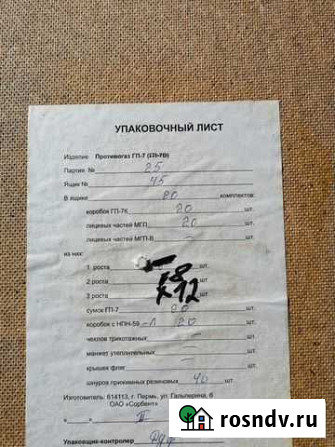 УПАКОВОЧНЫЙ ЛИСТ
Изделие: Противогаз ГП-7 (ГП-7В)
Партия № 25
Ящик № 45
В ящике 20 комплектов:
коробок ГП-7К 20 шт.
лицевых частей МГП 20 шт.
лицевых частей МГП-В — шт.
из них:
1 роста — шт.
2 роста 8 шт.
3 роста 12 шт.
сумок ГП-7 20 шт.
коробок с НПН-59 -Л 20 шт.
чехлов трикотажных — шт.
манжет утеплительных — шт.
крышек фляг — шт.
шнуров прижимных резиновых 40 шт.
Изготовитель: 614113, г. Пермь, ул. Гальперина, 6
ОАО «Сорбент»
Упаковщик-контролер
rosndv.ru